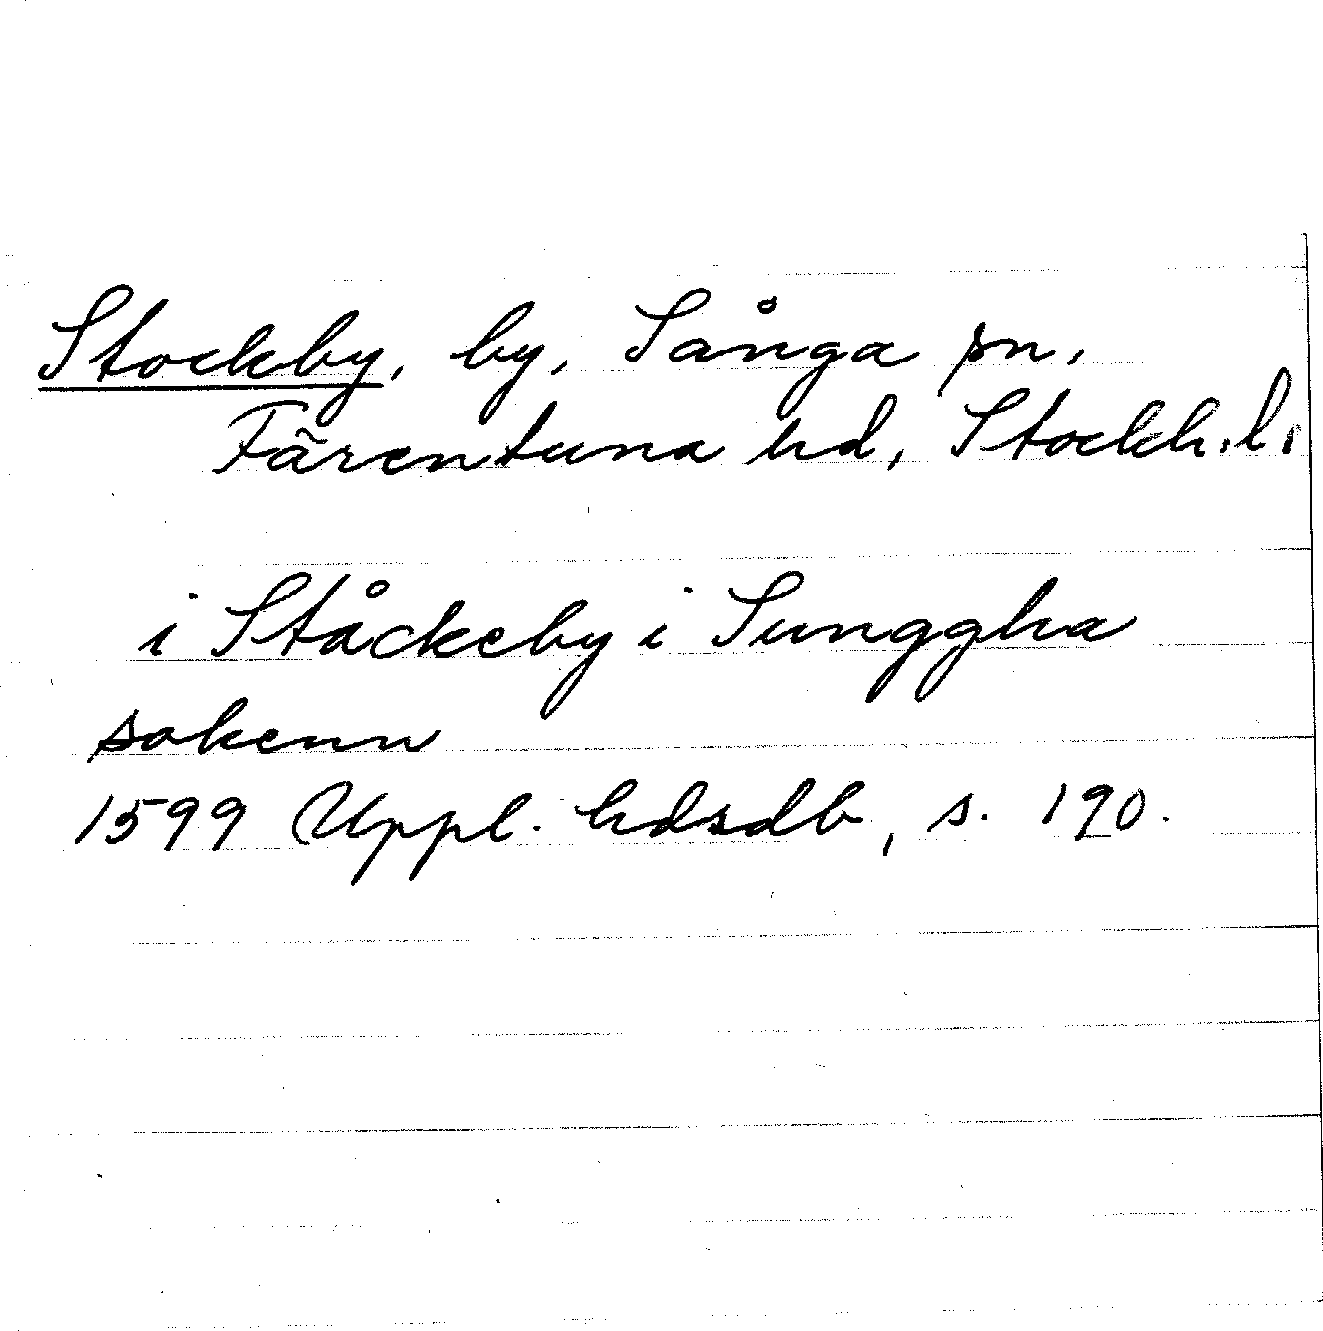 Stockby, by, Sånga sn,
Färentuna hd, Stockh.l.
i Ståckeby i Sunggha
sokenn
1599 Uppl. hdsdb, s. 190.